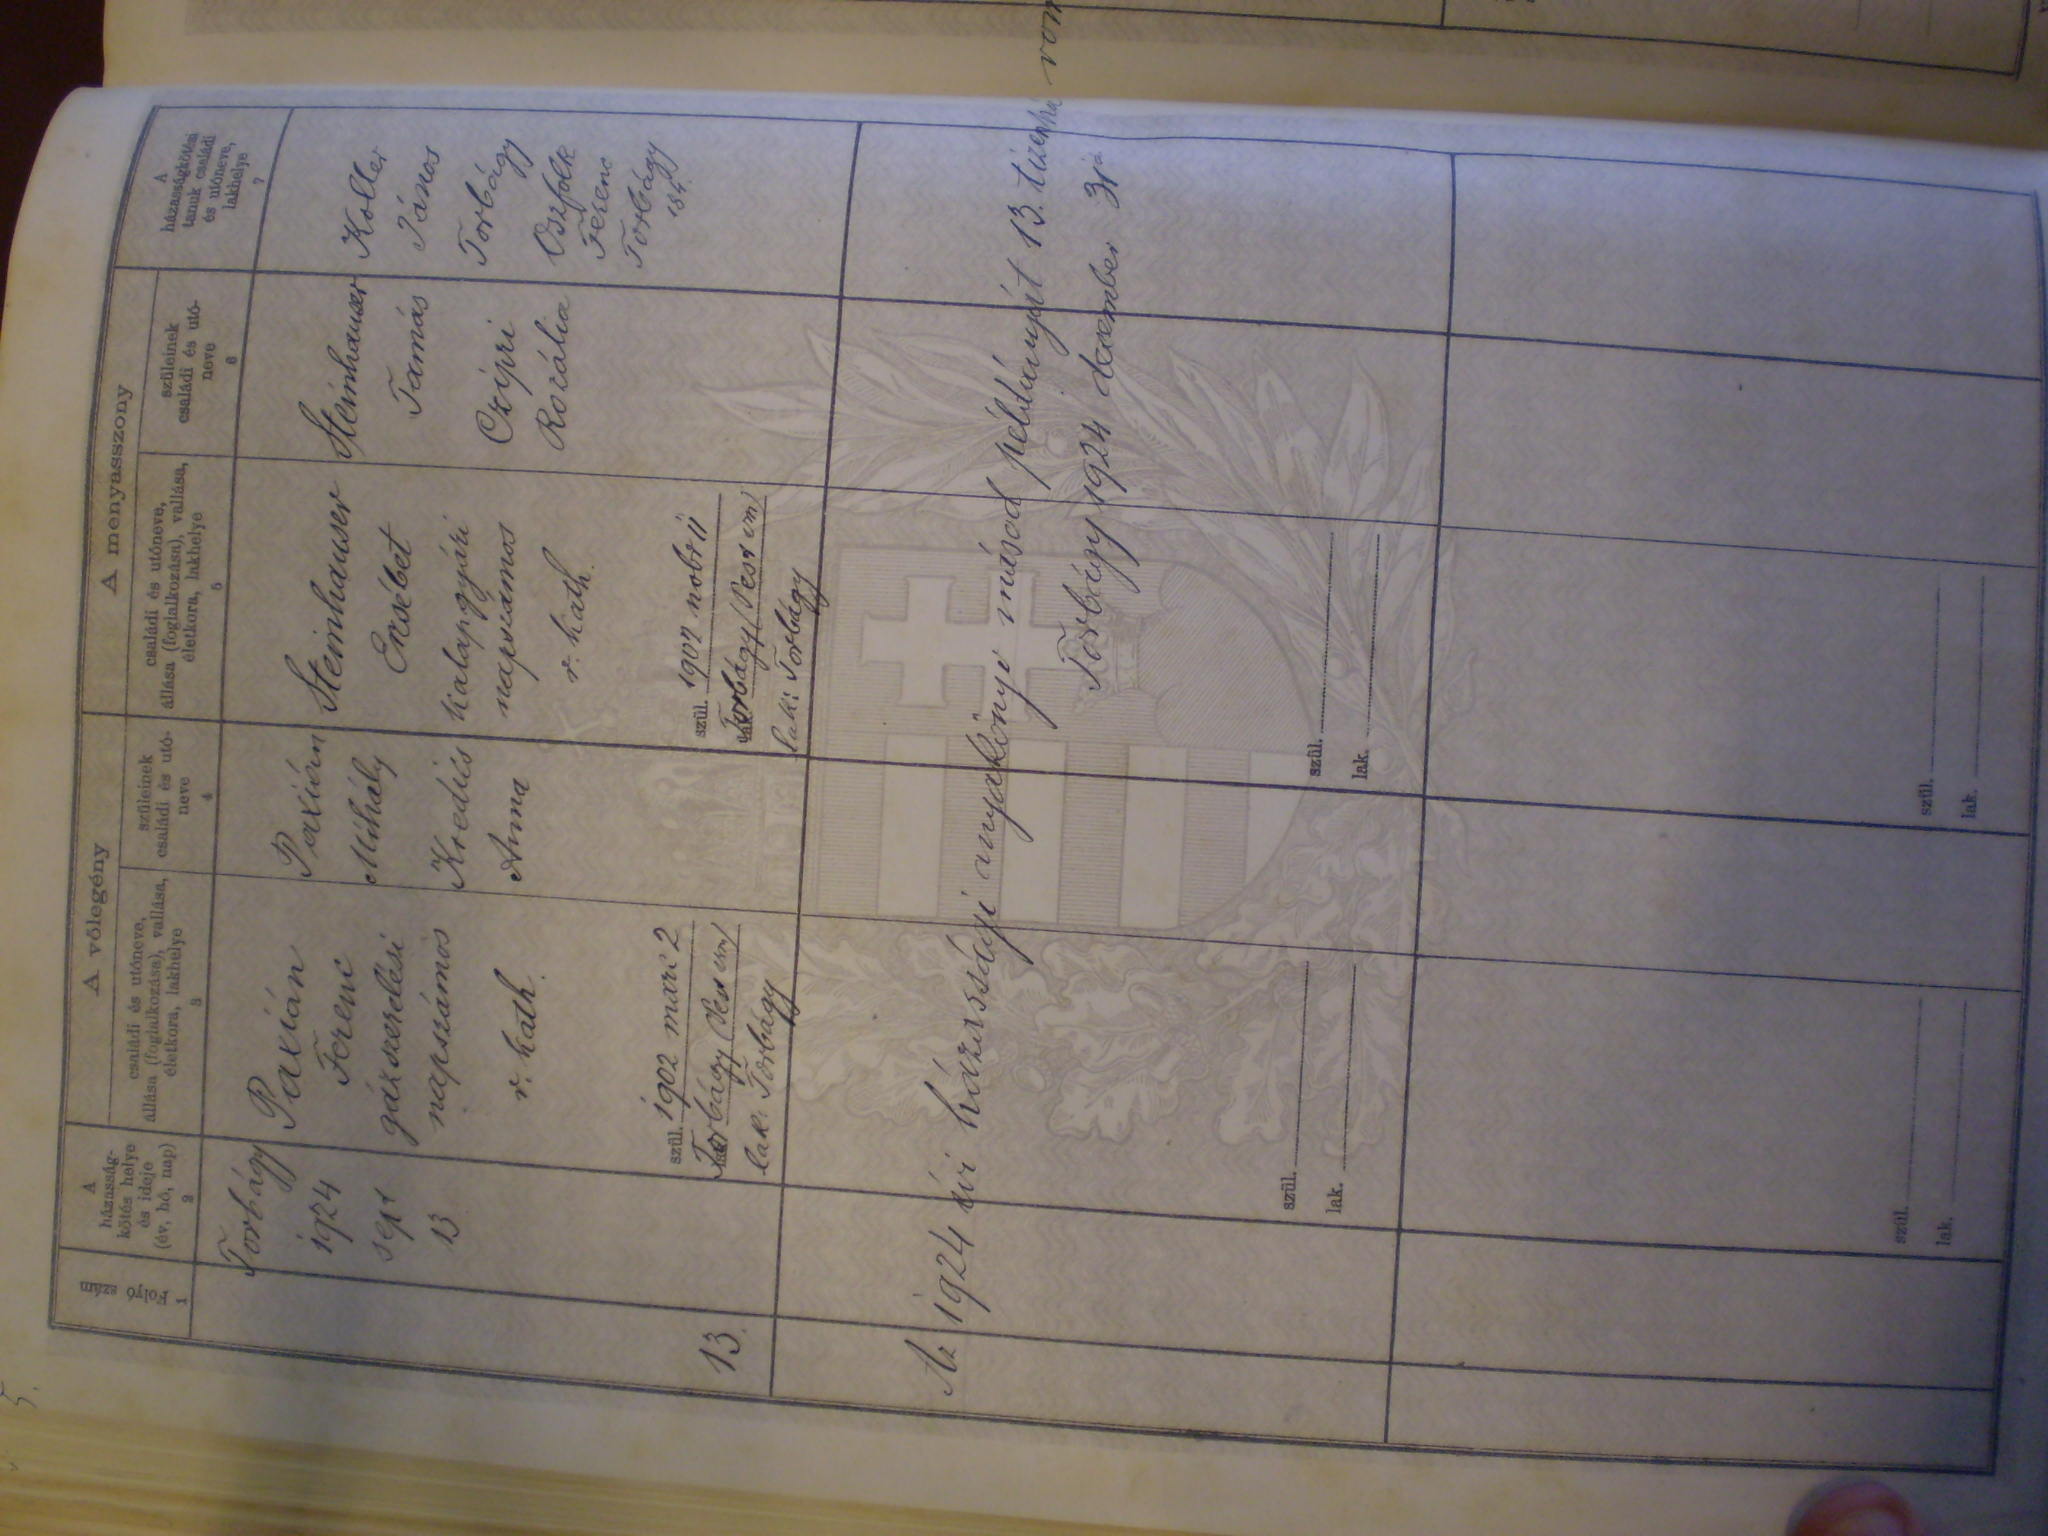 5.
Folyó szám
1
A
házasság-
kötés helye
és ideje
(év, hó, nap)
2
A vőlegény
családi és utóneve,
állása (foglalkozása), vallása,
életkora, lakhelye
3
szüleinek
családi és utó-
neve
4
A menyasszony
családi és utóneve,
állása (foglalkozása), vallása,
életkora, lakhelye
5
szüleinek
családi és utó-
neve
6
A
házasságkötési
tanuk családi
és utóneve,
lakhelye
7
13.
Torbágy
1924
sept
13
Paxián
Ferenc
gázszerelési
napszámos
r. kath.
szül. 1902 marc 2
Torbágy (Pest vm)
lak: Torbágy
Paxián
Mihály
Kredics
Anna
Steinhauser
Erzsébet
kalapgyári
napszámos
r. kath.
szül. 1907 nobr 11
Torbágy (Pest vm)
lak: Torbágy
Steinhauser
Tamás
Czipri
Rozália
Koller
János
Torbágy
Oszfolk
Ferenc
Torbágy
Az 1924 évi házassági anyakönyv másod példányát 13. tizenhá
Torbágy 1924 december 31
szül.
lak.
szül.
lak.
szül.
lak.
szül.
lak.